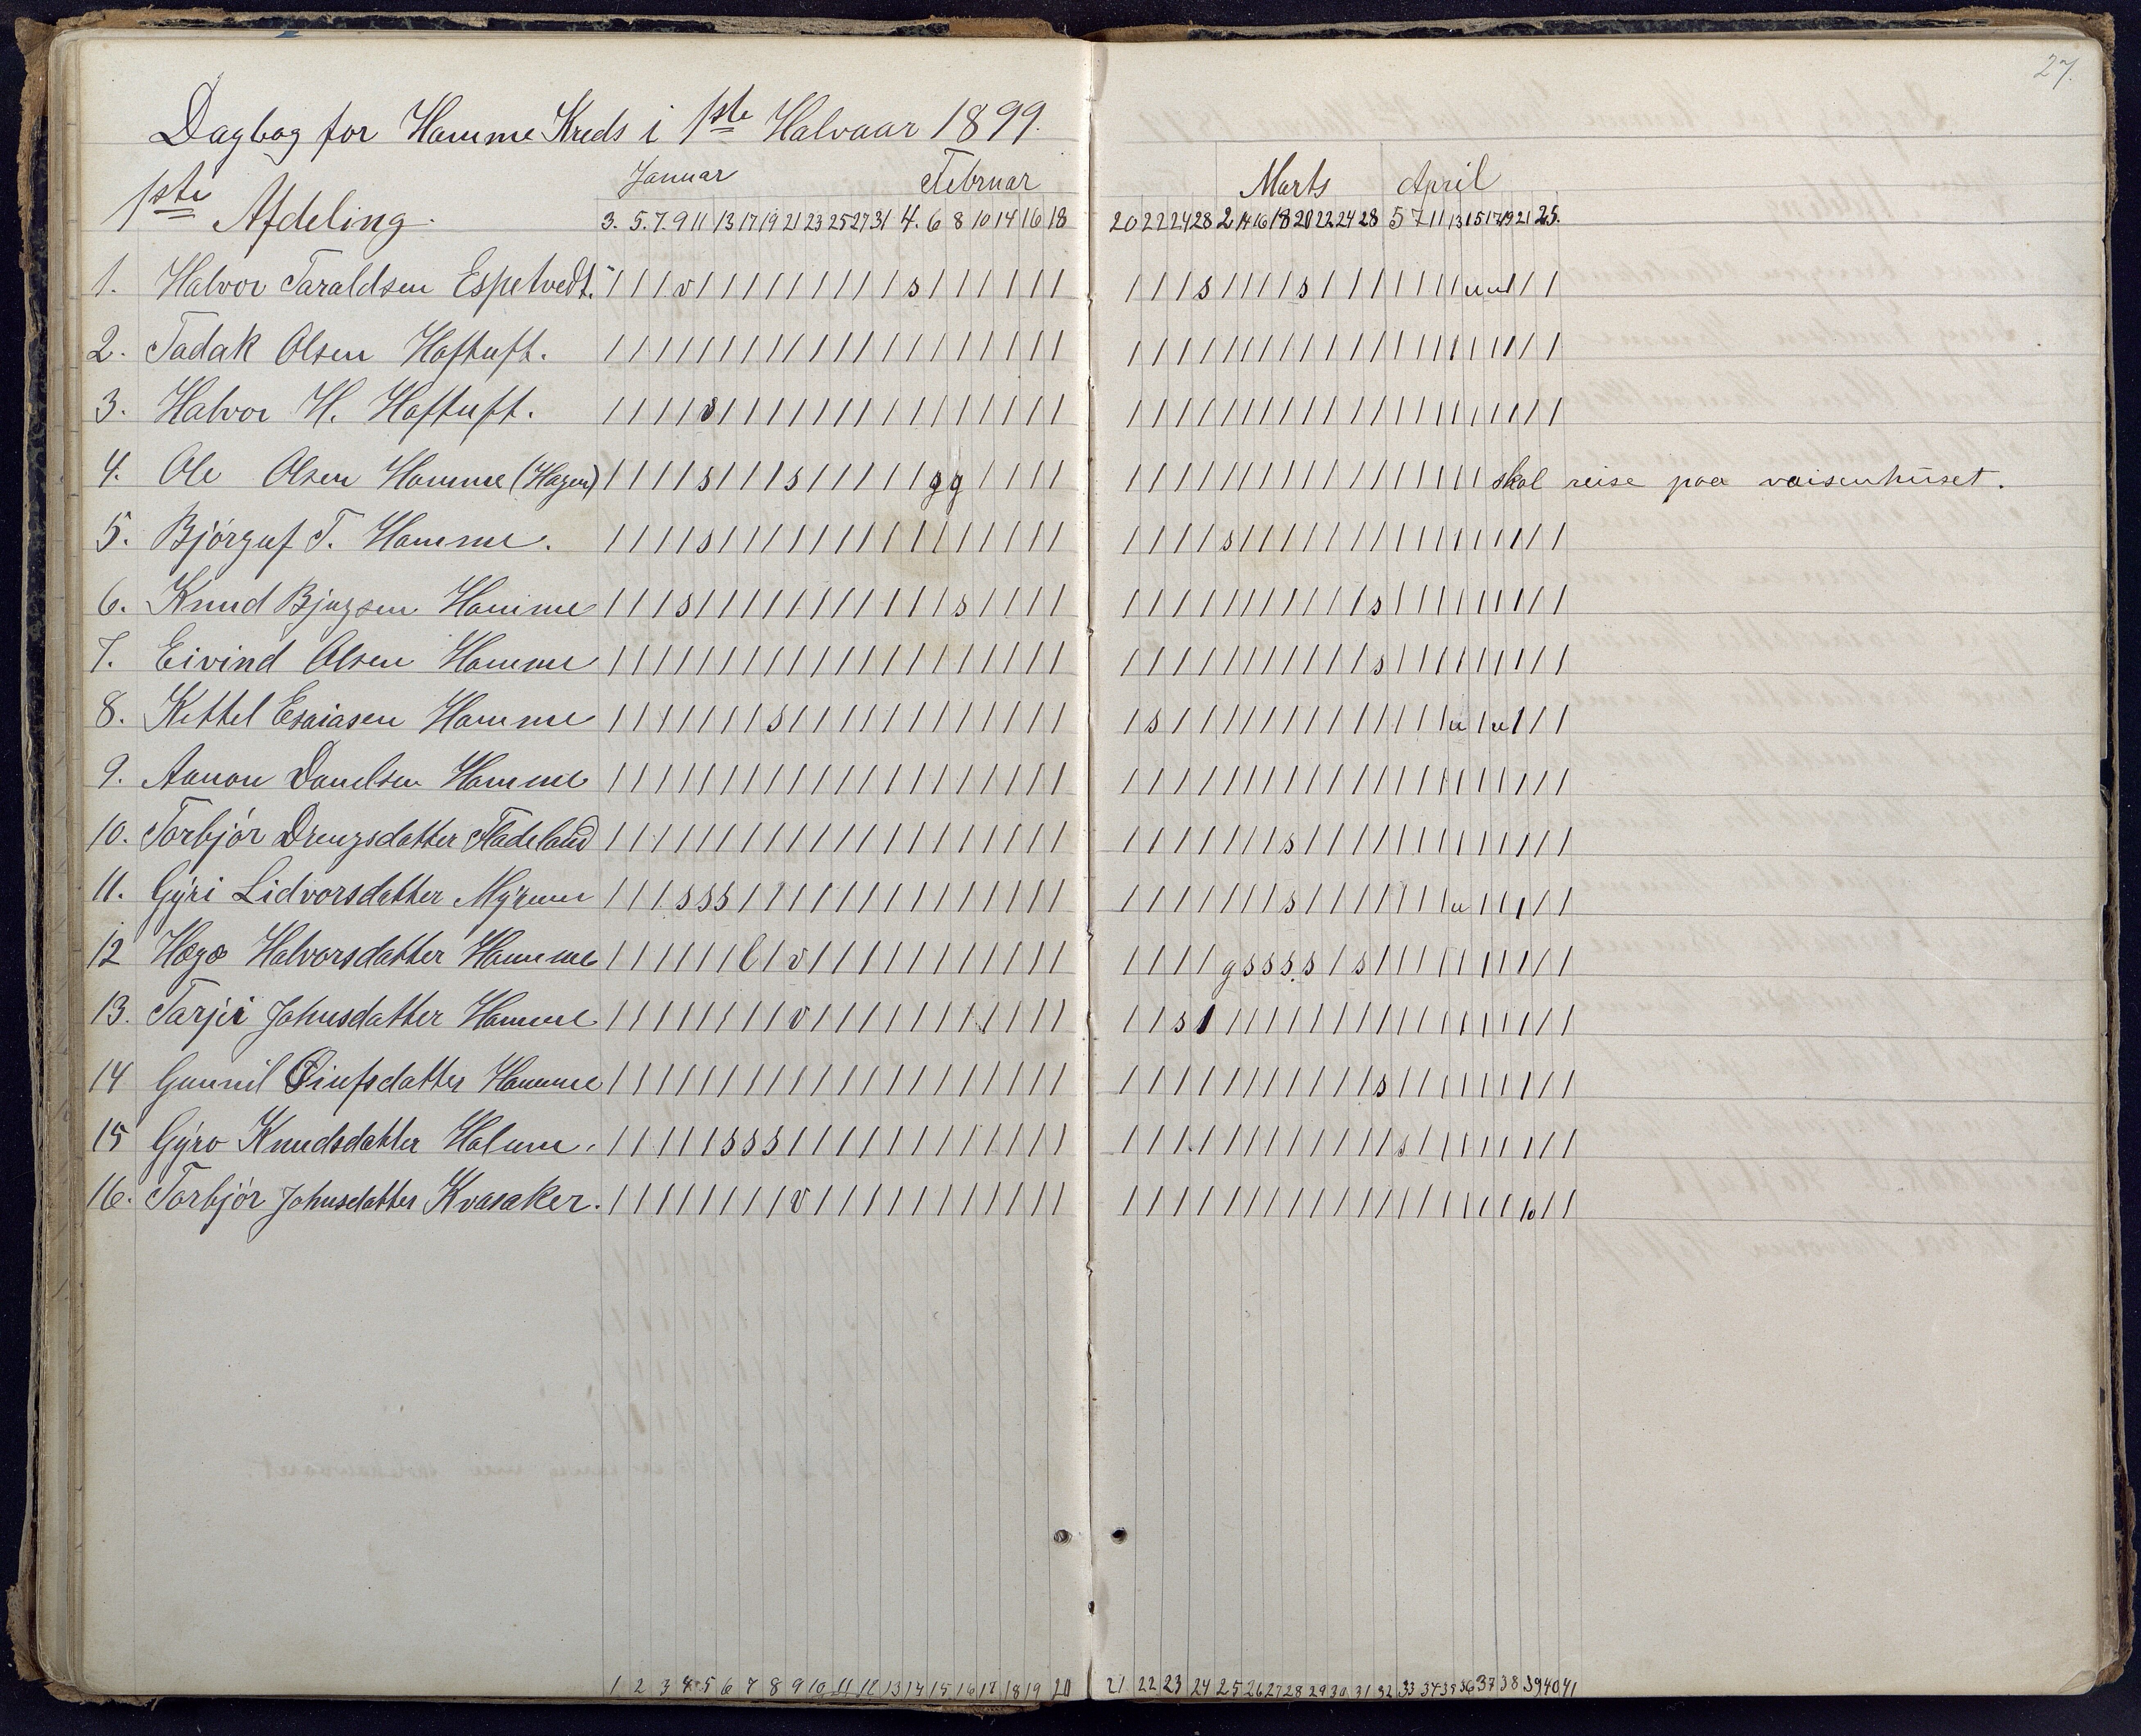 27.
Dagbog for Hamme Kreds i 1ste Halvaar 1899.
Januar Februar Marts April
1ste Afdeling.
3. 5. 7. 9 11 13 17 19 21 23 25 27 31 4. 6 8 10 14 16 18 20 22 24 28 2 14 16 18 20 22 24 28 5 7 11 13 15 17 19 21 25.
1. Halvor Taraldsen Espetvedt. / / / v / / / / / / / / / s / / / / / / / / / s / / / / s / / / / / / / u u / / /
2. Tadak Olsen Haftuft.
3. Halvor H. Haftuft.
4. Ole Olsen Hamme (Hagen) / / / / s / / / s / / / / / g g / / / / skal reise paa vaisenhuset.
5. Bjørguf T. Hamme.
6. Knud Bjugsen Hamme
7. Eivind Olsen Hamme
8. Kittel Esaiasen Hamme
9. Aanon Danelsen Hamme
10. Torbjør Drengsdatter Fladeland
11. Gyri Lidvorsdatter Myrene
12 Hæge Halvorsdatter Hamme
13. Tarjei Johnsdatter Hamme
14 Gunnil Hamme
15 Gyro Knudsdatter
16. Torbjør Johnsdatter Kvasaker.
1 2 3 4 5 6 7 8 9 10 11 12 13 14 15 16 17 18 19 20 21 22 23 24 25 26 27 28 29 30 31 32 33 34 35 36 37 38 39 40 41